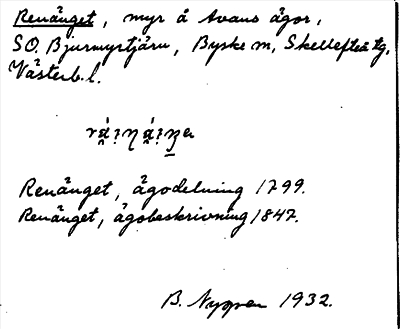 Renänget, myr å Avans ägor,
SO. Bjurmyrtjärn, Byske sn, Skellefteå tg,
Västerb. l.
Renänget, ägodelning 1799.
Renänget, ägobeskrivning 1847.
B. Nyman 1932.